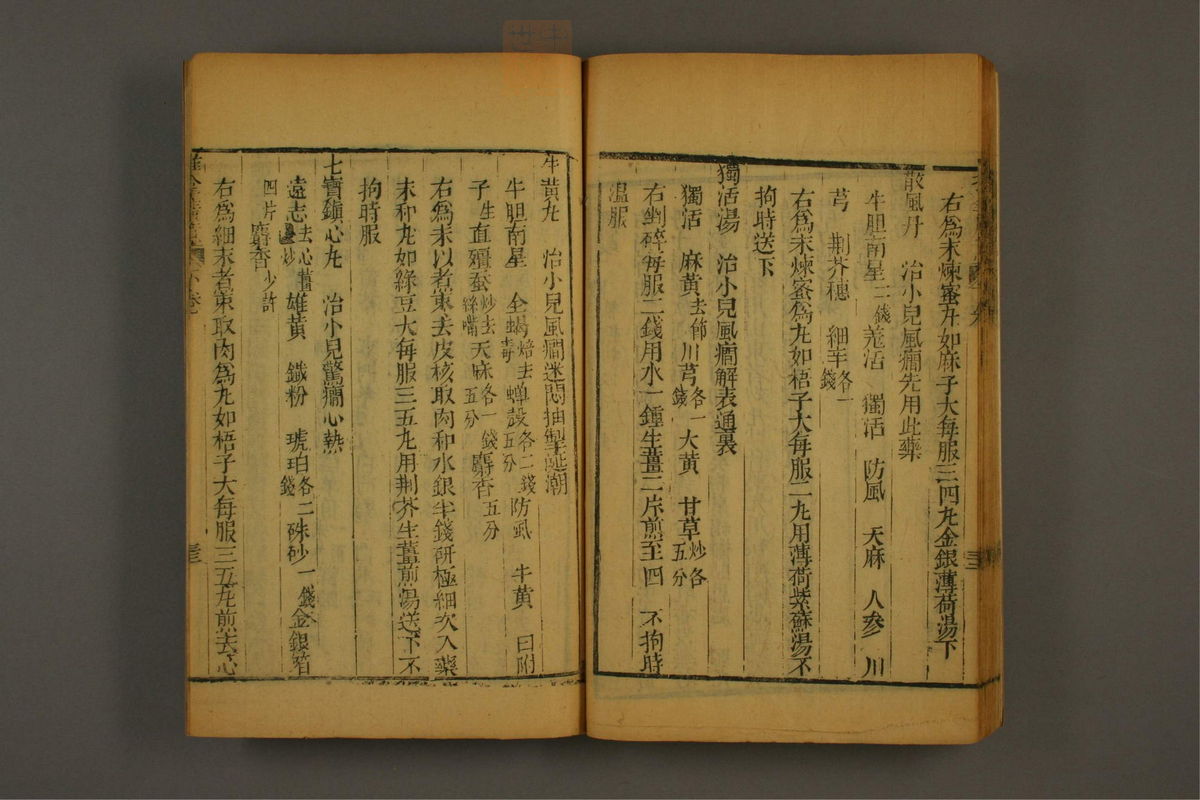 右爲末煉蜜丸如麻子大每服三四丸金銀薄荷湯下
散風丹 治小兒風癎先用此藥
牛胆南星二錢羗活 獨活 防風 天麻 人參 川
芎 荆芥穗 細辛各一錢
右爲末煉蜜爲丸如梧子大每服二丸用薄荷紫蘇湯不
拘時送下
獨活湯 治小兒風癎解表通裏
獨活 麻黃去節川芎各一錢大黃 甘草炒各五分
右剉碎每服二錢用水一鍾生薑二片煎至四 不拘時
温服
牛黃丸 治小兒風癎迷悶抽掣涎潮
牛胆南星 全蝎焙去毒蟬殼各二錢五分防風 牛黃 白附
子生直殭蚕炒去絲嘴天麻各一錢五分麝香五分
右爲末以煮棗去皮核取肉和水銀半錢研極細次入藥
末和丸如綠豆大每服三五丸用荆芥生薑煎湯送下不
拘時服
七寶鎭心丸 治小兒驚癎心熱
遠志去心薑炒雄黃 鐵粉 琥珀各二錢硃砂一錢金銀箔
四片麝香少許
右爲細末煮棗取肉爲丸如梧子大每服三五丸煎去心